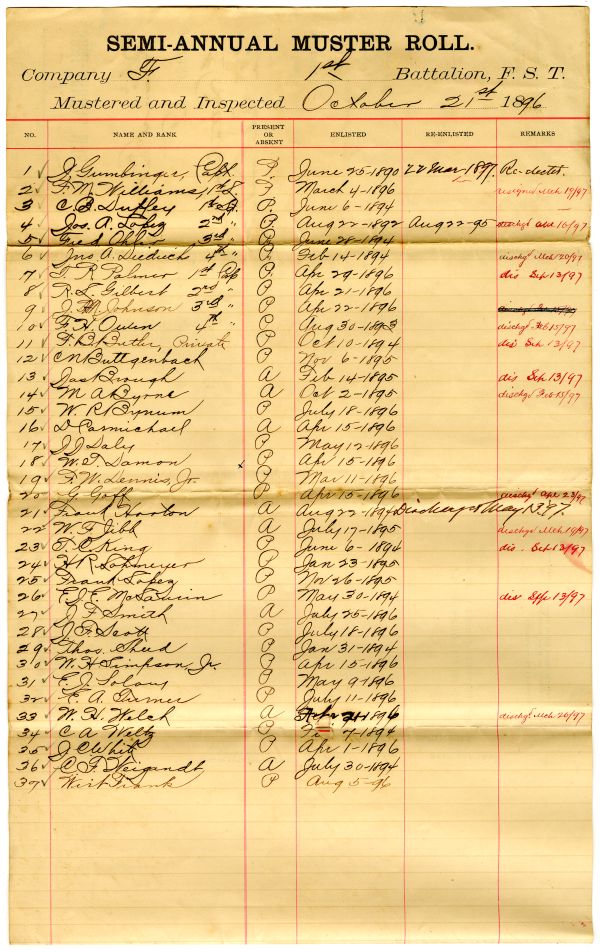 SEMI-ANNUAL MUSTER ROLL.
Company F. 1st Battalion, F. S. T.
Mustered and Inspected October 21st 1896
NO. NAME AND RANK PRESENT OR ABSENT ENLISTED RE-ENLISTED REMARKS
1 J. Gumbinger, Capt. P. June 25-1890 22 Mar 1897. Re-elected.
2 F. M. Williams, 1st L P March 4-1896 resigned Mch 19/97
3 C B. Dudley P June 6-1894
4 Jos. A. Lopez 2nd " P Aug 22-1892 Aug 22-95
5 3rd " P June 28-1894
6 Jno A. Diedrich 4th " P Feb 14-1894 dischgd Mch 20/97
7 F. R. Palmer 1st Cop P Apr 29-1896 dis Sep 13/97
8 R. L. Gilbert 2nd " P Apr 21-1896
9 Johnson 3rd " P Apr 22-1896
10 F. H. Owen 4th " P Aug 30-1893 dischgd Feb 15/97
11 F. B. Butler, Private P Oct 10-1894 dis Sep 13/97
12 C N Buttgenbach P Nov 6-1895
13 Jas Brough A Feb 14-1895 dis Sep 13/97
14 M A Byrne A Oct 2-1895 dischgd Feb 15/97
15 W. R. Bynum P July 18-1896
16 D Carmichael A Apr 15-1896
17 J J Daly P May 12-1896
18 W. F. Damon P Apr 15-1896
19 F. W. Dennis, Jr. P Mar 11-1896
20 G. Goff P Apr 15-1896 dischgd Apr 23/97
21 Frank Horton A Aug 22-1894 Discharged May 1897.
22 W. F. Jibb A July 17-1895 dischgd Mch 19/97
23 F. C. King P June 6-1894 dis. Sep 13/97
24 H R Lohmeyer P Jan 23-1895
25 Frank Lopez P Nov 26-1895
26 E. J. E. McLaurin P May 30-1894 dis Sep 13/97
27 J. F. Smith A July 25-1896
28 J. F. Scott P July 18-1896
29 Thos. Shed P Jan 31-1894
30 W. H Simpson, Jr. P Apr 15-1896
31 E. J. Solary P May 9-1896
32 E. A. Turner P July 11-1896
33 W. H. Welch A 1896 dischgd Mch 20/97
34 C A Weltz P 7-1894
35 J C White P Apr 1-1896
36 C. F. Weigandt A July 30-1894
37 West Frank P Aug 5-96